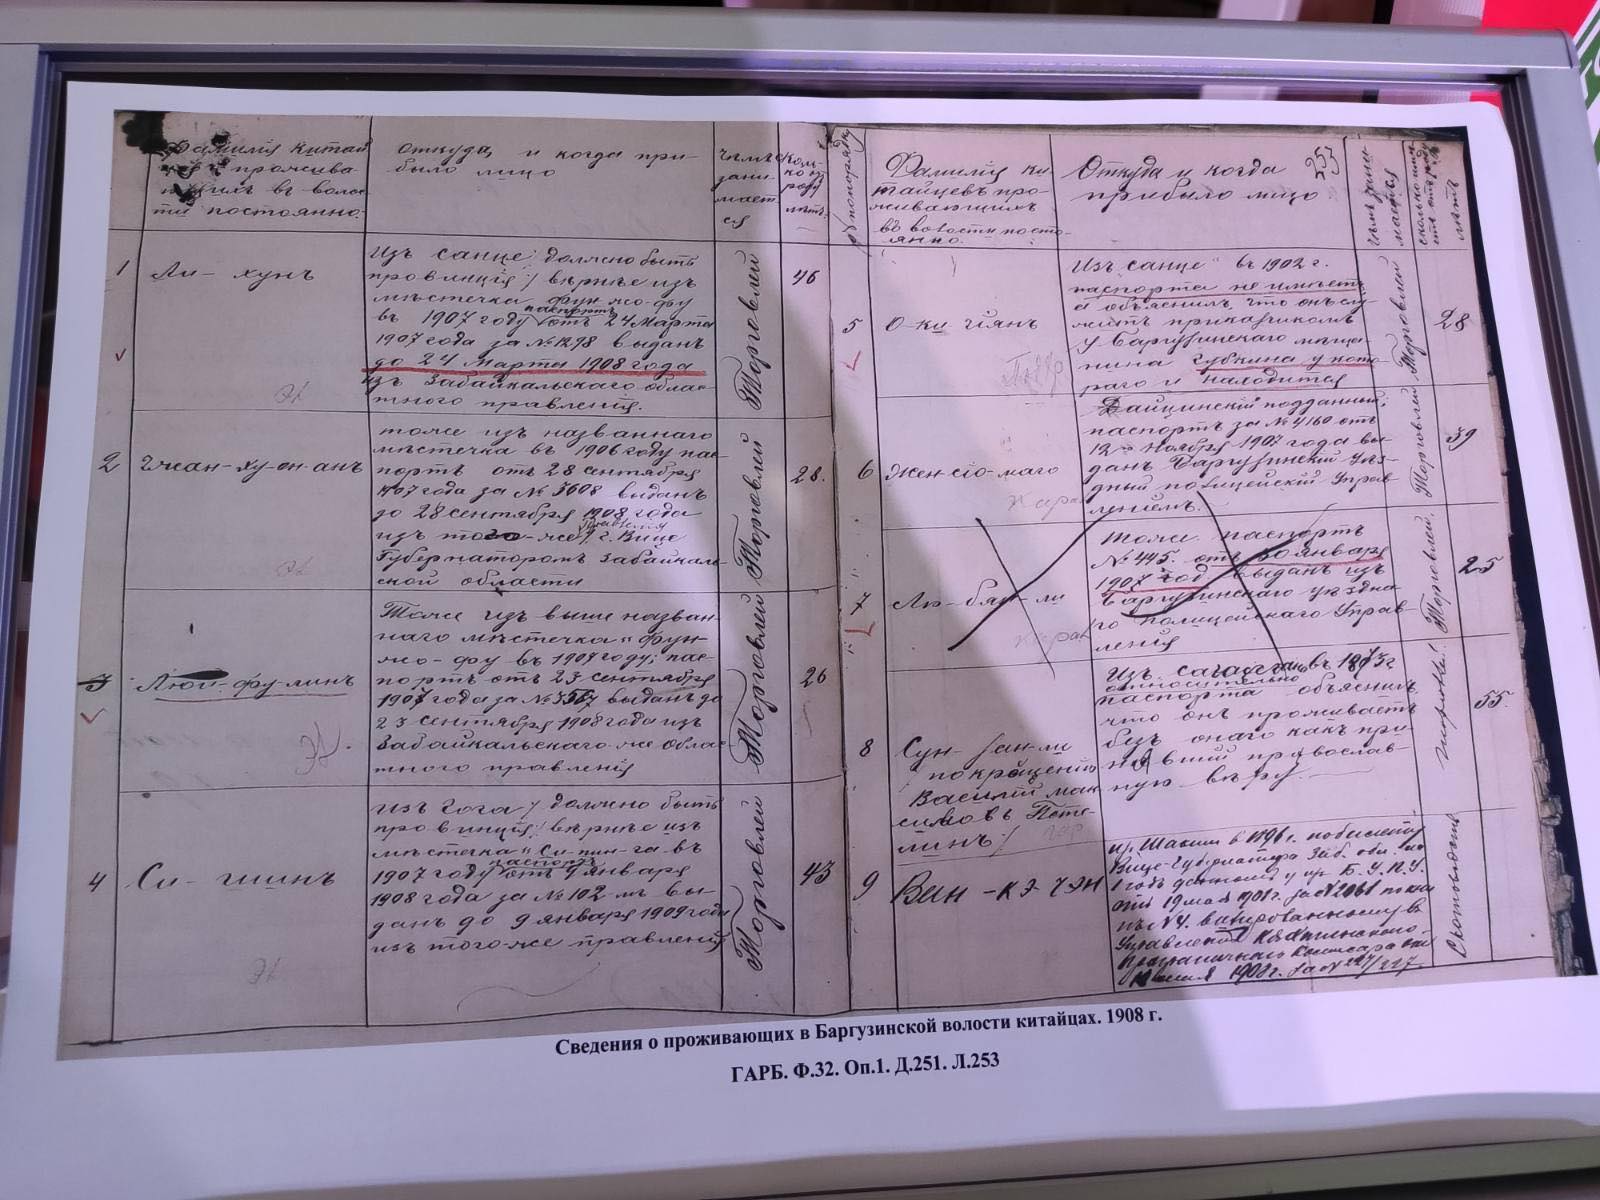 Фамилія китай
проживаю
въ волос
ти постоянно.
откуда и когда при-
было лицо
чѣмъ
зани-
мает
ся
сколь-
ко от
роду
лѣтъ.
1
Ли-хунъ
Изъ санце, должно быть
провинція / вѣрнѣе изъ
мѣстечка фун-жо-фу
въ 1907 году паспортъ отъ 24 Марта
1907 года за № 1298 выданъ
до 24 Марта 1908 года
изъ Забайкальскаго облас-
тного правленія.
Торговлей
46
2
Чжан-ху-он-анъ
тоже изъ названнаго
мѣстечка въ 1906 году пас-
портъ отъ 28 сентября
1907 года за № 3608 выданъ
до 28 сентября 1908 года
изъ того-же г. Вице
Губернаторомъ Забайкаль-
ской области
Торговлей
28.
3
Люй-фу-линъ
Тоже изъ выше назван-
наго мѣстечка "фун-
жо-фу въ 1907 году; пас-
портъ отъ 23 сентября
1907 года за № выданъ до
23 сентября 1908 года изъ
Забайкальскаго-же облас-
тного правленія
Торговлей
26
4
Си-
изъ Гога / должно быть
провинція / вѣрнѣе изъ
мѣстечка "Си-пин-га въ
1907 году паспортъ отъ 9 января
1908 года за № 102-мъ вы-
данъ до 9 января 1909 года
изъ того-же правленія
Торговлей
43
№ по порядку
Фамилія ки-
тайцевъ про-
живающихъ
въ волости посто-
янно.
Откуда и когда
прибыло лицо
253
чѣмъ зани-
мается
сколько
лѣтъ
5
О-ки-
Изъ "санце" въ 1902 г.
паспорта не имѣетъ
а объяснилъ, что онъ слу-
житъ приказчикомъ
у Баргузинскаго мѣща-
нина Губкина у кото-
раго и находится
Торговлей
28
6
Жен-сіо-маго
Дайцинскій подданный,
паспортъ за № 4160 отъ
12-го Ноября 1907 года вы-
данъ Баргузинскій Уѣз-
дный полицейскій Управ-
леніемъ.
Торговлей
39
7
Лю-бян-ли
Тоже паспортъ
№ 445 отъ 30 января
1907 год выданъ изъ
Баргузинскаго уѣздна-
го полицейскаго Управ-
ленія
Торговлей.
25
8
Сун-фан-ли
/по крещенію
Василій Мак-
симовъ Пете-
линъ/
Изъ въ 1875 г
относительно
паспорта объяснилъ,
что онъ проживаетъ
безъ онаго какъ при-
нявшій православ-
ную вѣру.
55.
9
Ван-кэ-чэн
въ 1896 г. по билету
Вице-Губернатора Заб. обл.
отъ 19 мая 1901 г. за № 2061
Управленія Кяхтинскаго
Пограничнаго Комиссара
1908 г. за № 227/227.
Сведения о проживающих в Баргузинской волости китайцах. 1908 г.
ГАРБ. Ф.32. Оп.1. Д.251. Л.253